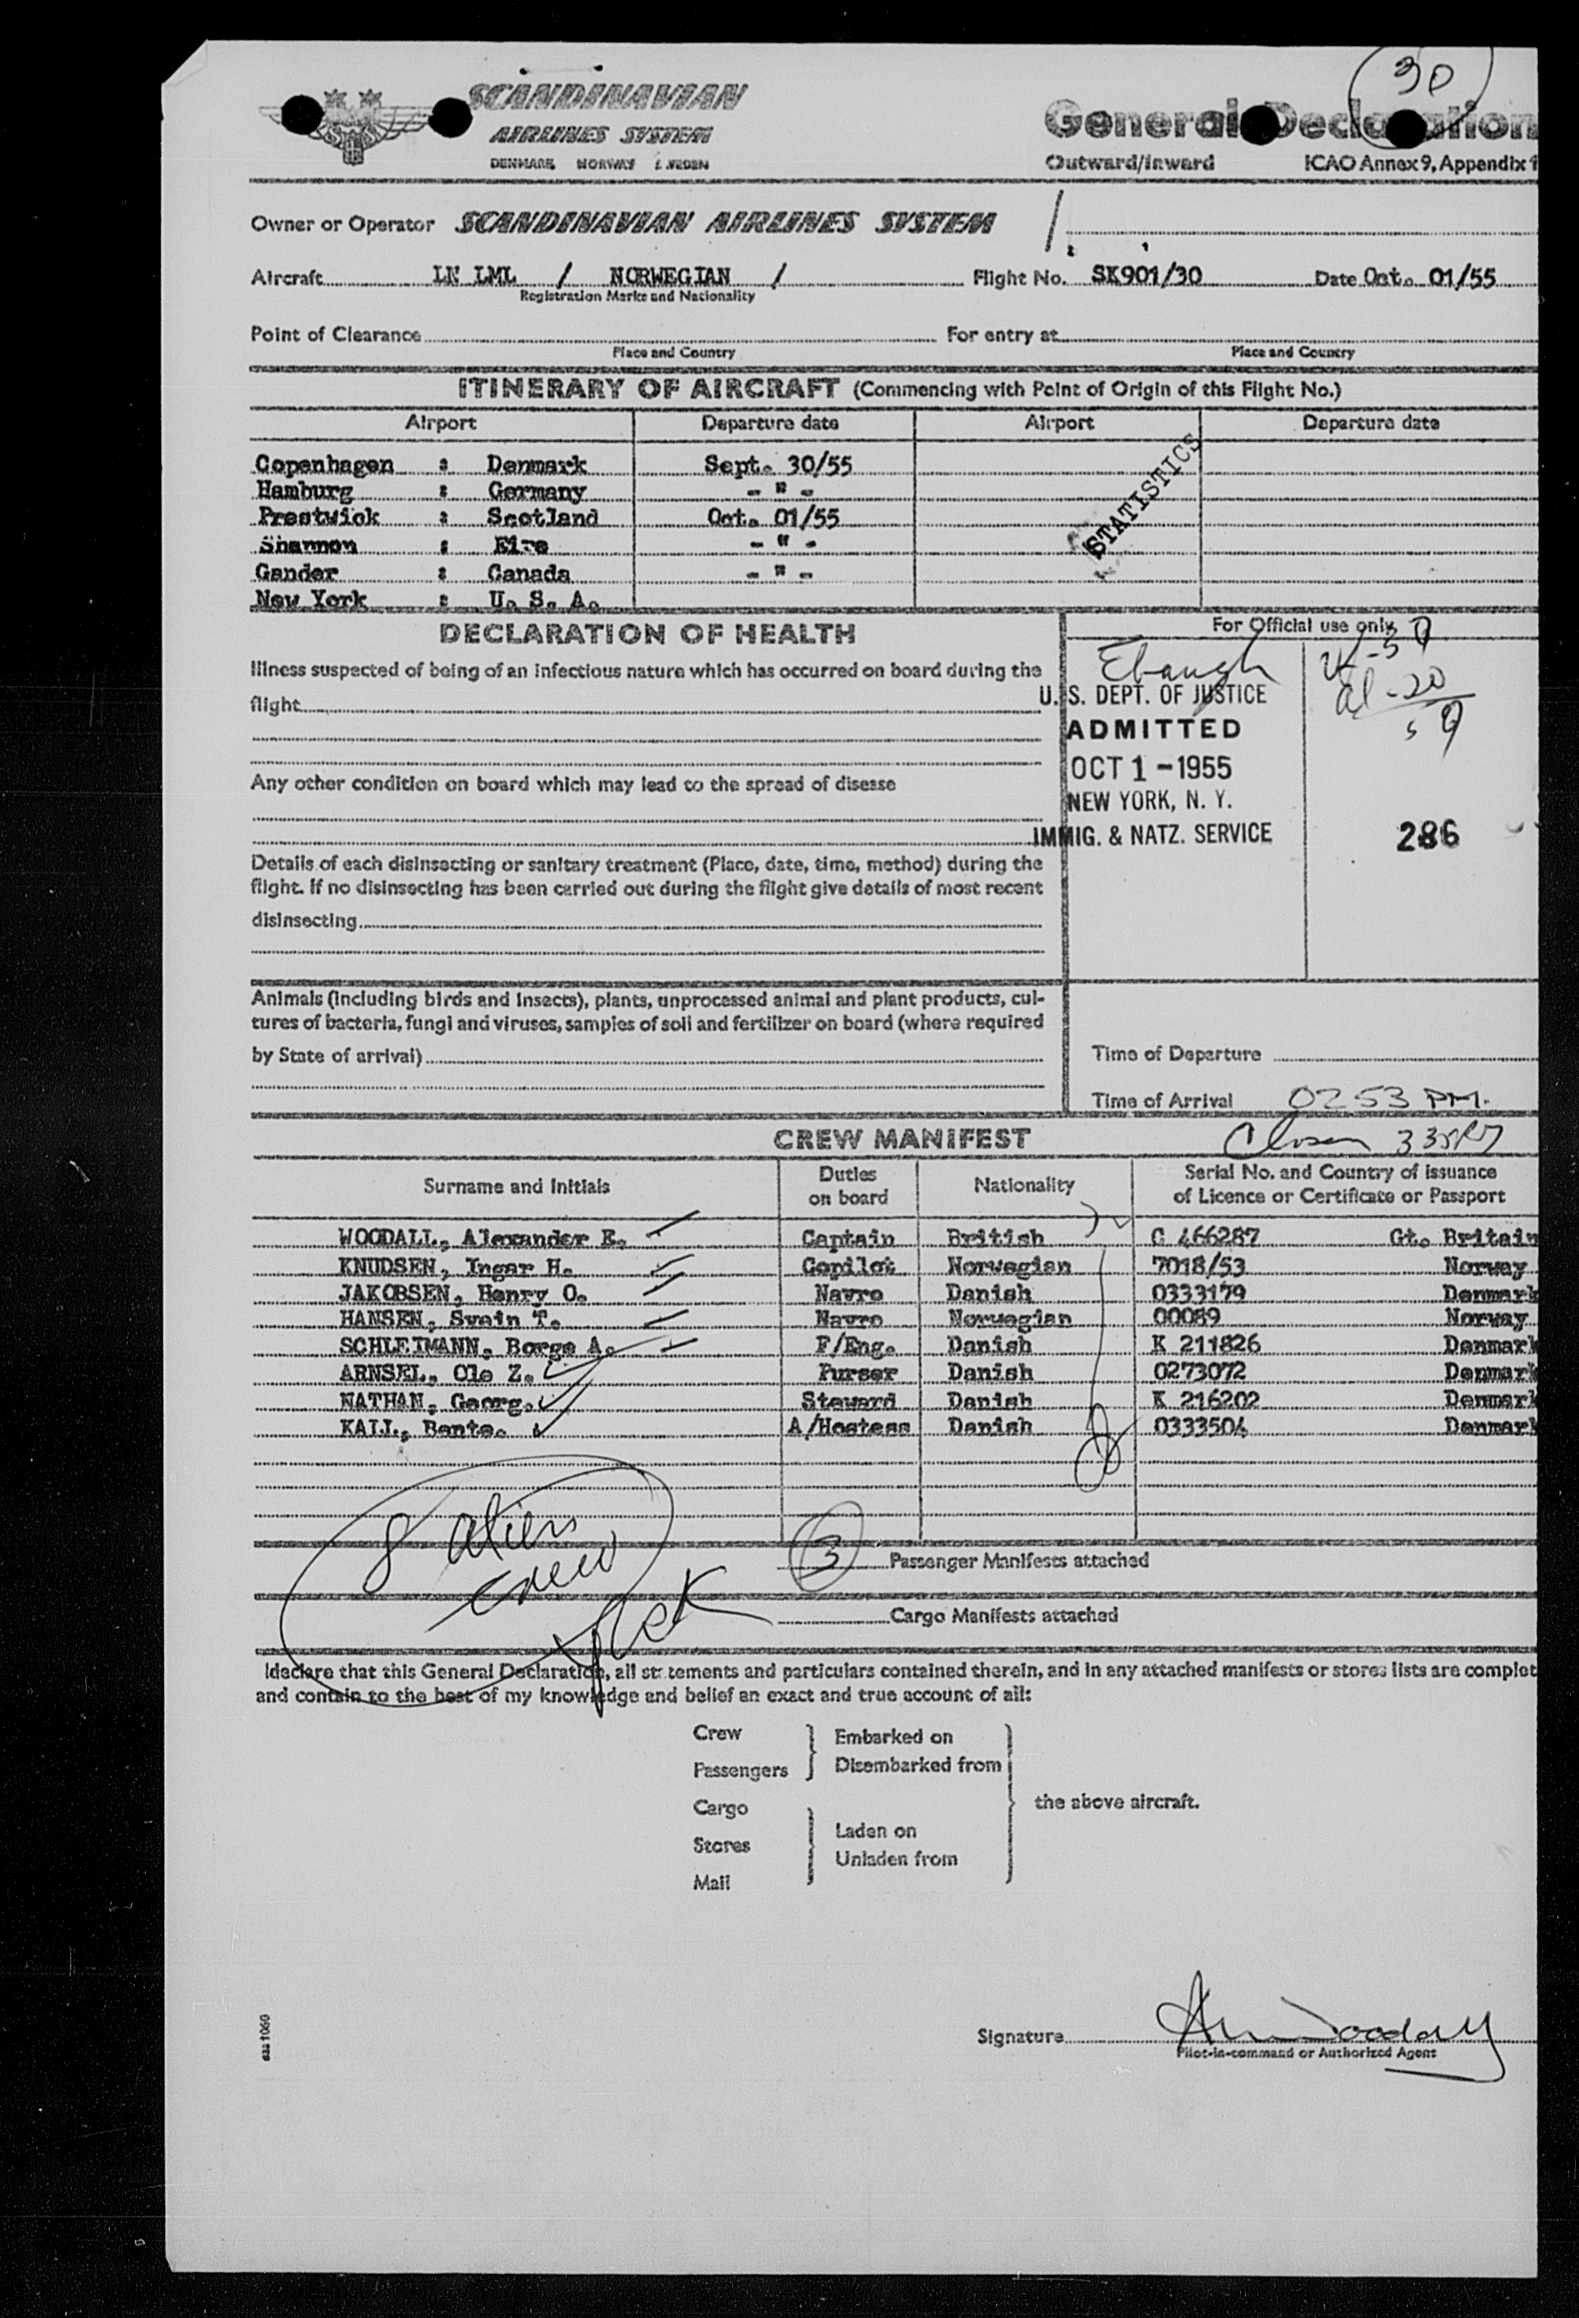 30
SCANDINAVIAN
AIRLINES SYSTEM
DENMARK NORWAY SWEDEN
General Declaration
Outward/Inward ICAO Annex 9, Appendix 1
Owner or Operator SCANDINAVIAN AIRLINES SYSTEM
Aircraft LN LML / NORWEGIAN / Flight No. SK901/30 Date Oct. 01/55
Registration Marks and Nationality
Point of Clearance For entry at
Place and Country Place and Country
ITINERARY OF AIRCRAFT (Commencing with Point of Origin of this Flight No.)
Airport Departure date Airport Departure date
Copenhagen : Denmark Sept. 30/55
Hamburg : Germany - " -
Prestwick : Scotland Oct. 01/55
Shannon : Eire - " -
Gander : Canada - " -
New York : U. S. A.
STATISTICS
DECLARATION OF HEALTH
For Official use only
Illness suspected of being of an infectious nature which has occurred on board during the
flight
Any other condition on board which may lead to the spread of disease
Details of each disinsecting or sanitary treatment (Place, date, time, method) during the
flight. If no disinsecting has been carried out during the flight give details of most recent
disinsecting
Ebaugh
U. S. DEPT. OF JUSTICE
ADMITTED
OCT 1 - 1955
NEW YORK, N. Y.
IMMIG. & NATZ. SERVICE
al - 20
59
286
Animals (including birds and insects), plants, unprocessed animal and plant products, cul-
tures of bacteria, fungi and viruses, samples of soil and fertilizer on board (where required
by State of arrival)
Time of Departure
Time of Arrival 0253 PM.
CREW MANIFEST
Surname and Initials Duties on board Nationality Serial No. and Country of issuance of Licence or Certificate or Passport
WOODALL, Alexander E. Captain British C 466287 Gt. Britain
KNUDSEN, Ingar H. Copilot Norwegian 7018/53 Norway
JAKOBSEN, Henry O. Navro Danish 0333179 Denmark
HANSEN, Svein T. Navro Norwegian 00089 Norway
SCHLEIMANN, Borge A. F/Eng. Danish K 211826 Denmark
ARNSEL, Ole Z. Purser Danish 0273072 Denmark
NATHAN, Georg. Steward Danish K 216202 Denmark
KALL, Bente. A/Hostess Danish 0333504 Denmark
8 alien
crew
3 Passenger Manifests attached
Cargo Manifests attached
I declare that this General Declaration, all statements and particulars contained therein, and in any attached manifests or stores lists are complet
and contain to the best of my knowledge and belief an exact and true account of all:
Crew
Passengers
Embarked on
Disembarked from
Cargo
Stores
Mail
Laden on
Unladen from
the above aircraft.
Signature
Pilot-in-command or Authorized Agent